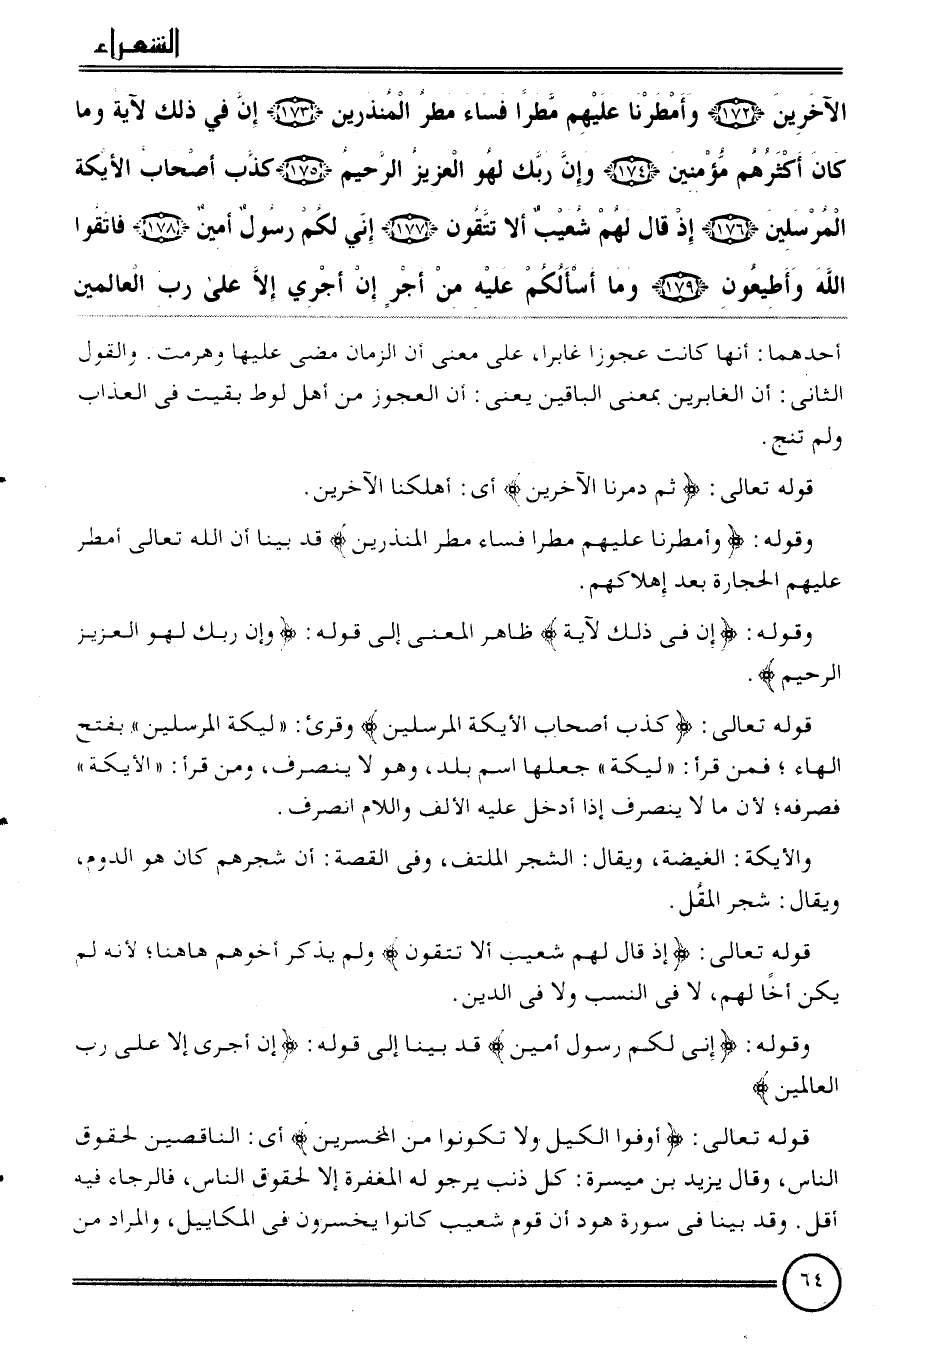 الشعراء
الآخَرِينَ ﴿١٧٢﴾ وَأَمْطَرْنَا عَلَيْهِم مَّطَرًا فَسَاءَ مَطَرُ الْمُنذَرِينَ ﴿١٧٣﴾ إِنَّ فِي ذَلِكَ لآيَةً وَمَا
كَانَ أَكْثَرُهُم مُّؤْمِنِينَ ﴿١٧٤﴾ وَإِنَّ رَبَّكَ لَهُوَ الْعَزِيزُ الرَّحِيمُ ﴿١٧٥﴾ كَذَّبَ أَصْحَابُ الأَيْكَةِ
الْمُرْسَلِينَ ﴿١٧٦﴾ إِذْ قَالَ لَهُمْ شُعَيْبٌ أَلا تَتَّقُونَ ﴿١٧٧﴾ إِنِّي لَكُمْ رَسُولٌ أَمِينٌ ﴿١٧٨﴾ فَاتَّقُوا
اللَّهَ وَأَطِيعُونِ ﴿١٧٩﴾ وَمَا أَسْأَلُكُمْ عَلَيْهِ مِنْ أَجْرٍ إِنْ أَجْرِيَ إِلاَّ عَلَىٰ رَبِّ الْعَالَمِينَ
أحدهما: أنها كانت عجوزا غابرا، على معنى أن الزمان مضى عليها وهرمت. والقول
الثانى: أن الغابرين بمعنى الباقين يعنى: أن العجوز من أهل لوط بقيت فى العذاب
ولم تنج.
قوله تعالى: ﴿ ثم دمرنا الآخرين ﴾ أى: أهلكنا الآخرين.
وقوله: ﴿ وأمطرنا عليهم مطرا فساء مطر المنذرين ﴾ قد بينا أن الله تعالى أمطر
عليهم الحجارة بعد إهلاكهم.
وقوله: ﴿ إن فى ذلك لآية ﴾ ظاهر المعنى إلى قوله: ﴿ وإن ربك لهو العزيز
الرحيم ﴾.
قوله تعالى: ﴿ كذب أصحاب الأيكة المرسلين ﴾ وقرئ: «ليكة المرسلين» بفتح
الهاء؛ فمن قرأ: «ليكة» جعلها اسم بلد، وهو لا ينصرف، ومن قرأ: «الأيكة»
فصرفه؛ لأن ما لا ينصرف إذا أدخل عليه الألف واللام انصرف.
والأيكة: الغيضة، ويقال: الشجر الملتف، وفى القصة: أن شجرهم كان هو الدوم،
ويقال: شجر المُقْل.
قوله تعالى: ﴿ إذ قال لهم شعيب ألا تتقون ﴾ ولم يذكر أخوهم هاهنا؛ لأنه لم
يكن أخًا لهم، لا فى النسب ولا فى الدين.
وقوله: ﴿ إنى لكم رسول أمين ﴾ قد بينا إلى قوله: ﴿ إن أجرى إلا على رب
العالمين ﴾
قوله تعالى: ﴿ أوفوا الكيل ولا تكونوا من المخسرين ﴾ أى: الناقصين لحقوق
الناس، وقال يزيد بن ميسرة: كل ذنب يرجو له المغفرة إلا لحقوق الناس، فالرجاء فيه
أقل. وقد بينا فى سورة هود أن قوم شعيب كانوا يخسرون فى المكاييل، والمراد من
٦٤